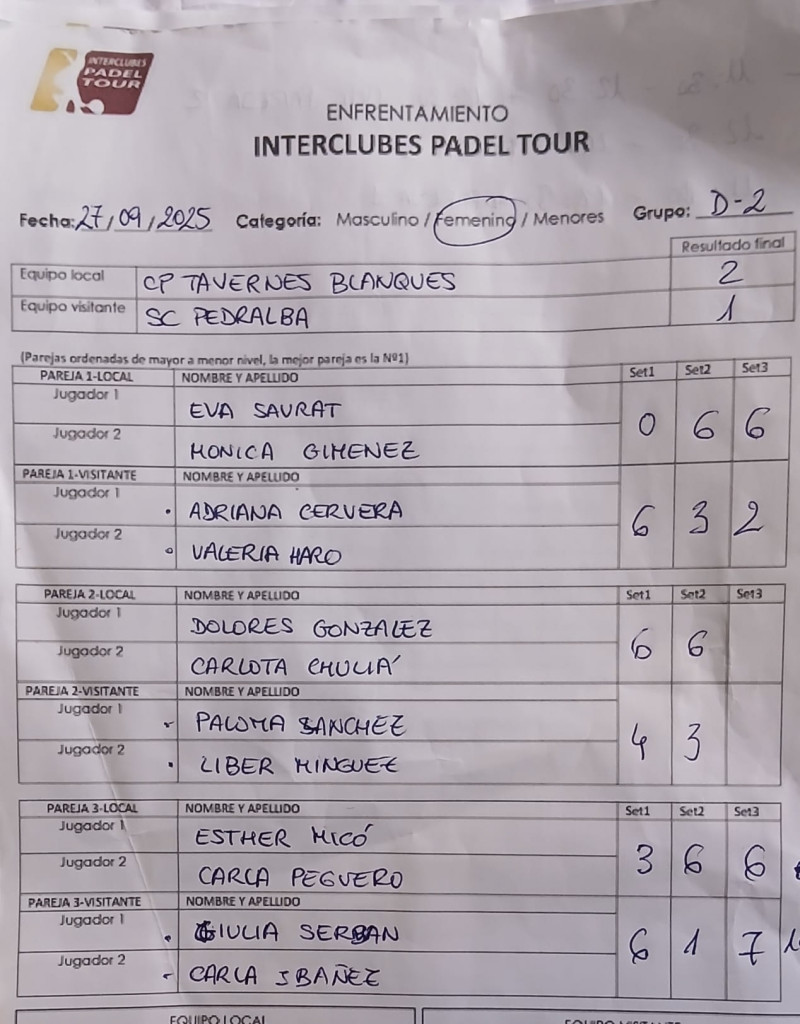 INTERCLUBES
PADEL
TOUR
ENFRENTAMIENTO
INTERCLUBES PADEL TOUR
Fecha: 27/09/2025 Categoría: Masculino / Femenino / Menores Grupo: D-2
Resultado final
Equipo local CP TAVERNES BLANQUES 2
Equipo visitante SC PEDRALBA 1
(Parejas ordenadas de mayor a menor nivel, la mejor pareja es la Nº1)
PAREJA 1-LOCAL NOMBRE Y APELLIDO Set1 Set2 Set3
Jugador 1 EVA SAURAT
0 6 6
Jugador 2 MONICA GIMENEZ
PAREJA 1-VISITANTE NOMBRE Y APELLIDO
Jugador 1 ADRIANA CERVERA
6 3 2
Jugador 2 VALERIA HARO
PAREJA 2-LOCAL NOMBRE Y APELLIDO Set1 Set2 Set3
Jugador 1 DOLORES GONZALEZ
6 6
Jugador 2 CARLOTA CHULIÁ
PAREJA 2-VISITANTE NOMBRE Y APELLIDO
Jugador 1 PALOMA SANCHEZ
4 3
Jugador 2 LIBER MINGUEZ
PAREJA 3-LOCAL NOMBRE Y APELLIDO Set1 Set2 Set3
Jugador 1 ESTHER MICÓ
3 6 6
Jugador 2 CARLA PEGUERO
PAREJA 3-VISITANTE NOMBRE Y APELLIDO
Jugador 1 GIULIA SERBAN
6 1 7
Jugador 2 CARLA IBAÑEZ
EQUIPO LOCAL EQUIPO VISITANTE